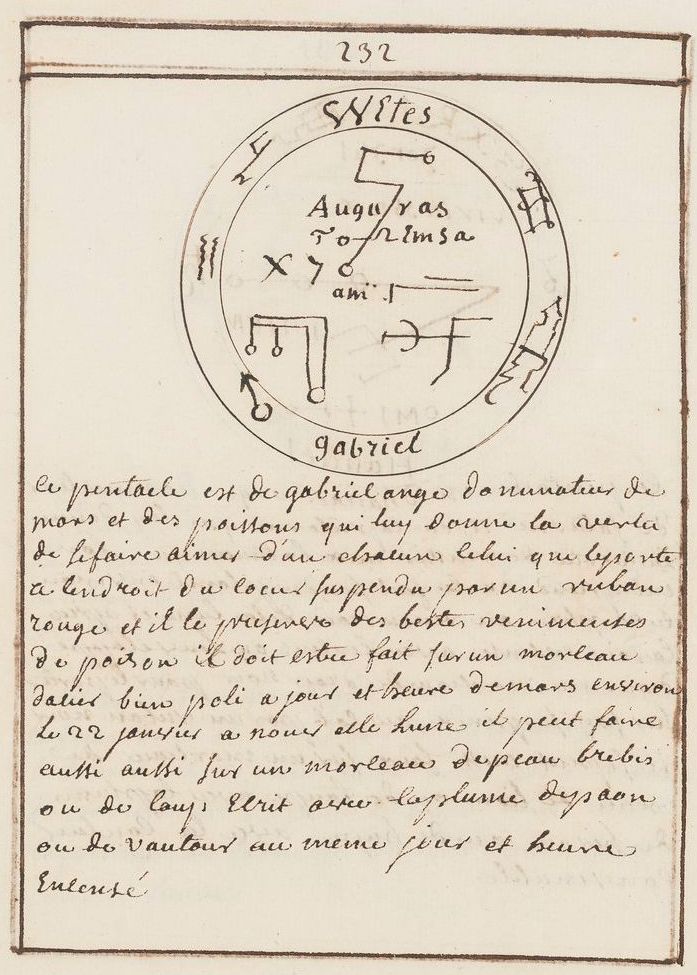 232
Wltes
Augu ras
To 2 Emsa
X 7
ani
gabriel
le pentacle est de gabriel ange dominateur de
mars et des poissons qui luy donne la vertu
de se faire aimer d'un chacun celui que le porte
a lendroit du coeur suspendu par un ruban
rouge et il le preserve des bestes venimeuses
de poison il doit estre fait sur un morleau
dacier bien poli a jour et heure de mars environ
le 22 janvier a nouvelle lune il peut faire
aussi aussi sur un morleau de peau brebis
ou de loup Ecrit avec la plume de paon
ou de vautour au meme jour et heure
Encensé